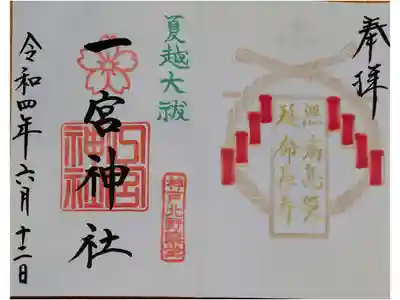 奉拝
無病息災
延命長寿
夏越大祓
神戸北野鎮座
一宮神社
令和四年六月十二日